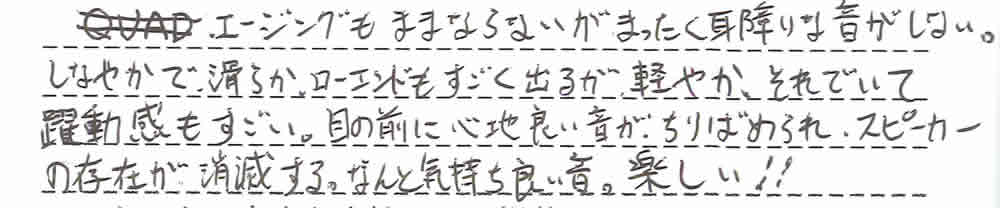 QUAD.エージングもままならないがまったく耳障りな音がしない。
しなやかで、滑らか、ローエンドもすごく出るが、軽やか、それでいて
躍動感もすごい。目の前に心地良い音が、ちりばめられ、スピーカー
の存在が消滅する。なんと気持ち良い音。楽しい!!